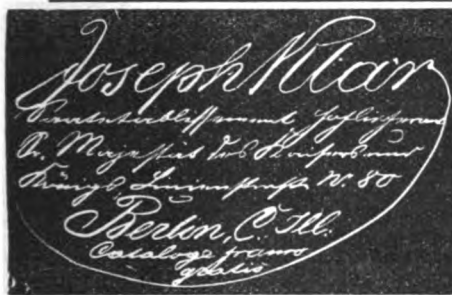 Joseph Klar
Samenetablissement, Hoflieferant
Sr. Majestät des Kaisers und
Königs, Linienstraße No. 80
Berlin, C.
Cataloge franco
gratis